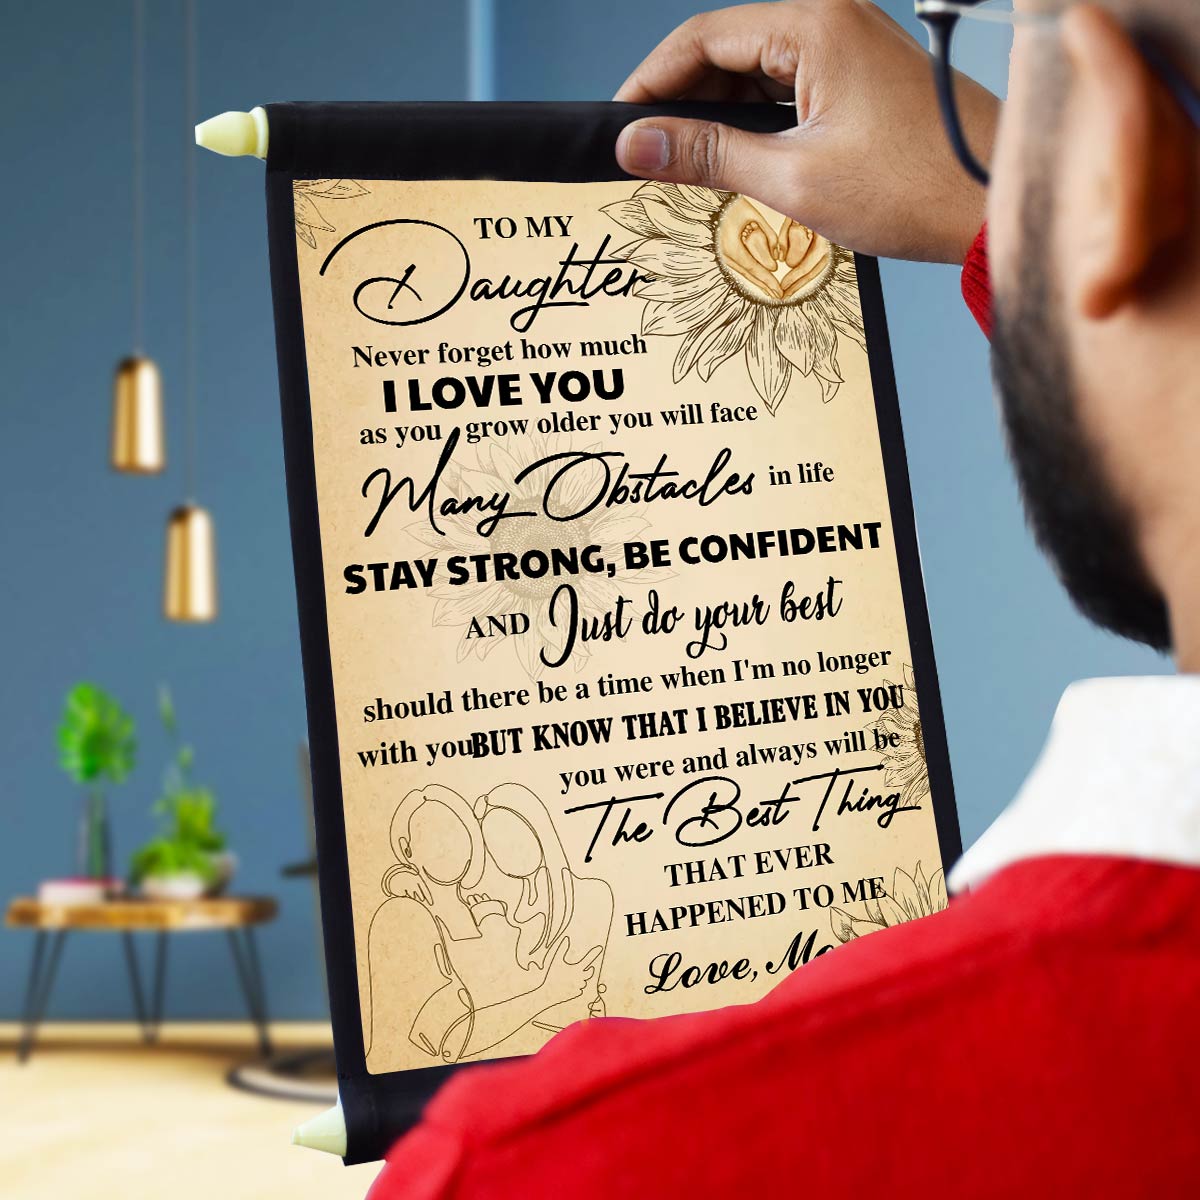 TO MY
Daughter
Never forget how much
I LOVE YOU
as you grow older you will face
Many Obstacles in life
STAY STRONG, BE CONFIDENT
AND Just do your best
should there be a time when I'm no longer
with you BUT KNOW THAT I BELIEVE IN YOU
you were and always will be
The Best Thing
THAT EVER
HAPPENED TO ME
Love,